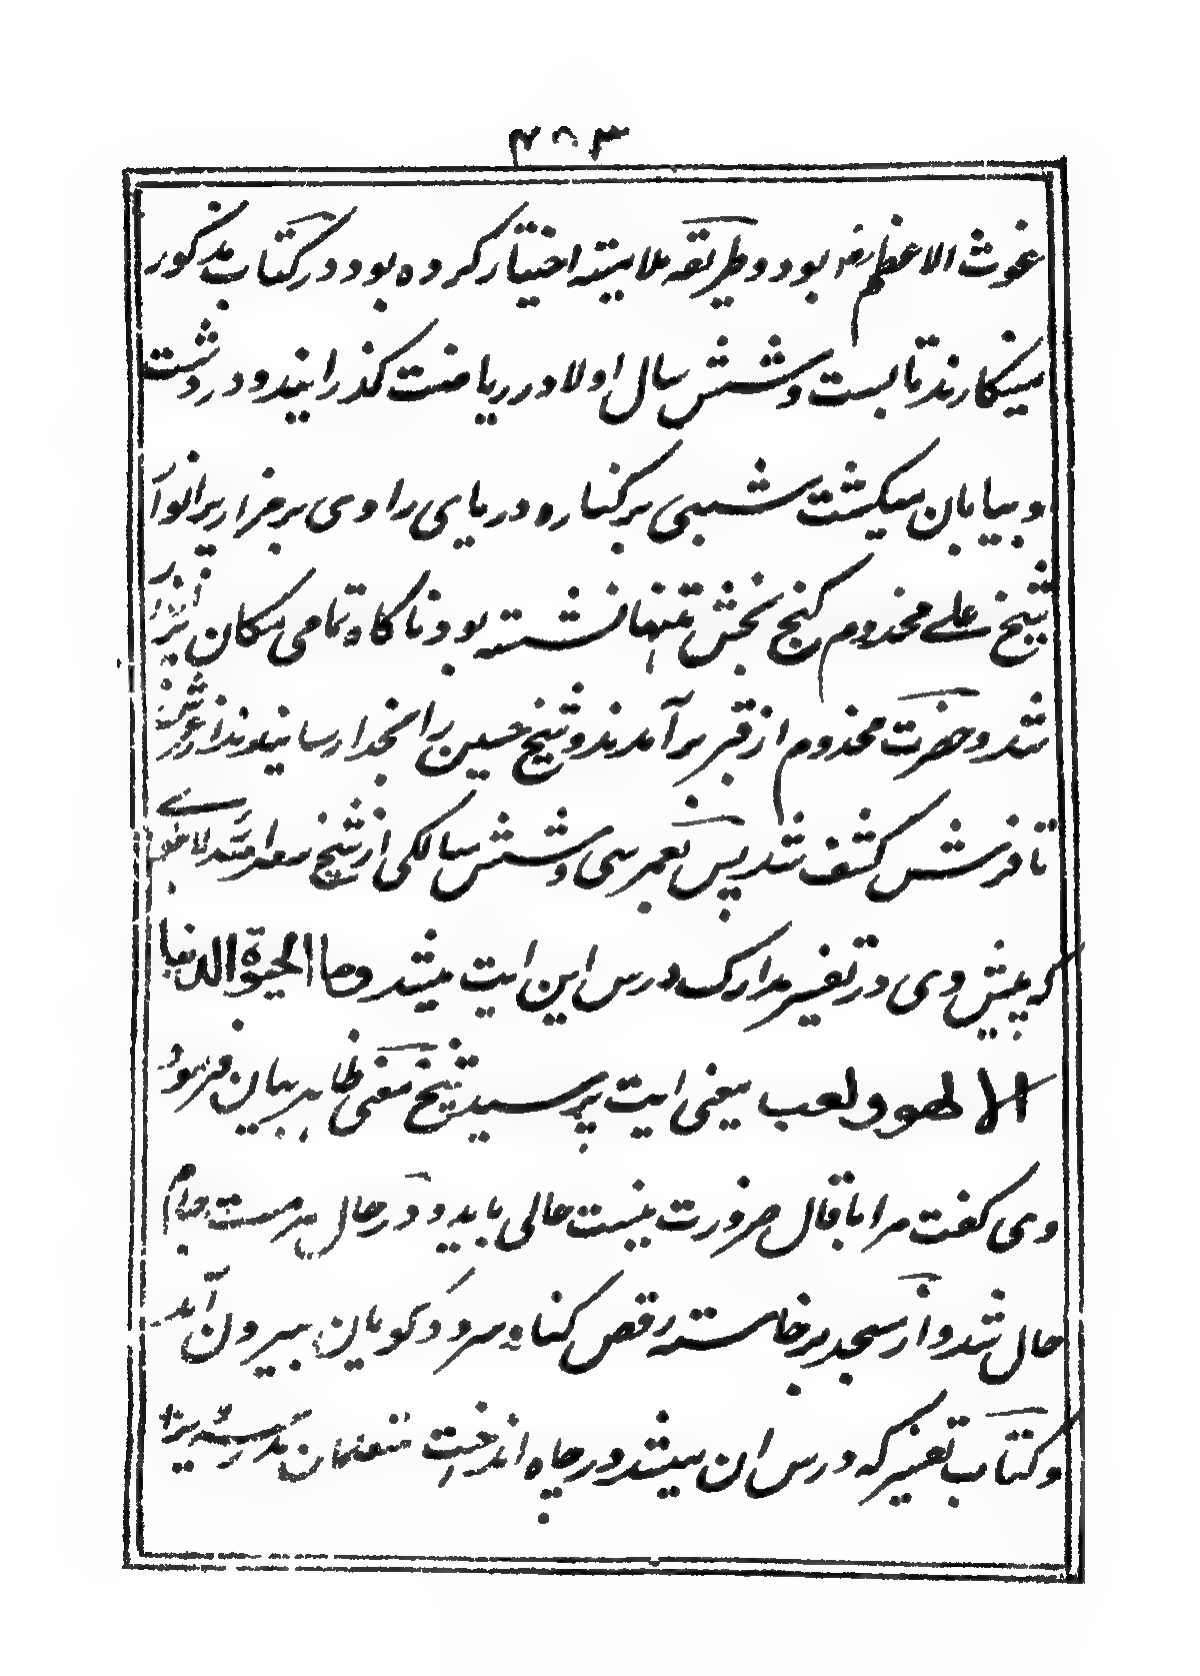 ۴۸۳
غوث الاعظم رض بود و طریقه ملامتیه اختیار کرده بود در کتاب مذکور
مینکارند تا بست و شش سال اولا در ریاضت کذرانیدو در دشت
و بیابان میکشت شبی بر کنارہ دریای راوی بر مزار پر انوار
شیخ علے مخدوم کنج بخش تنها نشسته بود ناکاہ تمامی مکان
شد و حضرت مخدوم از قبر بر آمدند و شیخ حسین را بخدا رسانیدند از عرش
تا فرش کشف شد پس بعمر سی و شش سالکی از شیخ سعد اللہ لاهوری
که پیش وی در تفسیر مدارک درس این ایت میشد وما الحیوة الدنیا
الا لهو و لعب معنی ایت پرسید شیخ معنی ظاہر بیان فرمود
وی کفت مرا با قال ضرورت نیست حالی باید و در حال سرمست جام
حال شد و از مسجد برخاسته رقص کناہ سرود کویان بیرون آمد
و کتاب تفسیر که درس ان میشد در چاہ انداخت متعلمان مدرسه